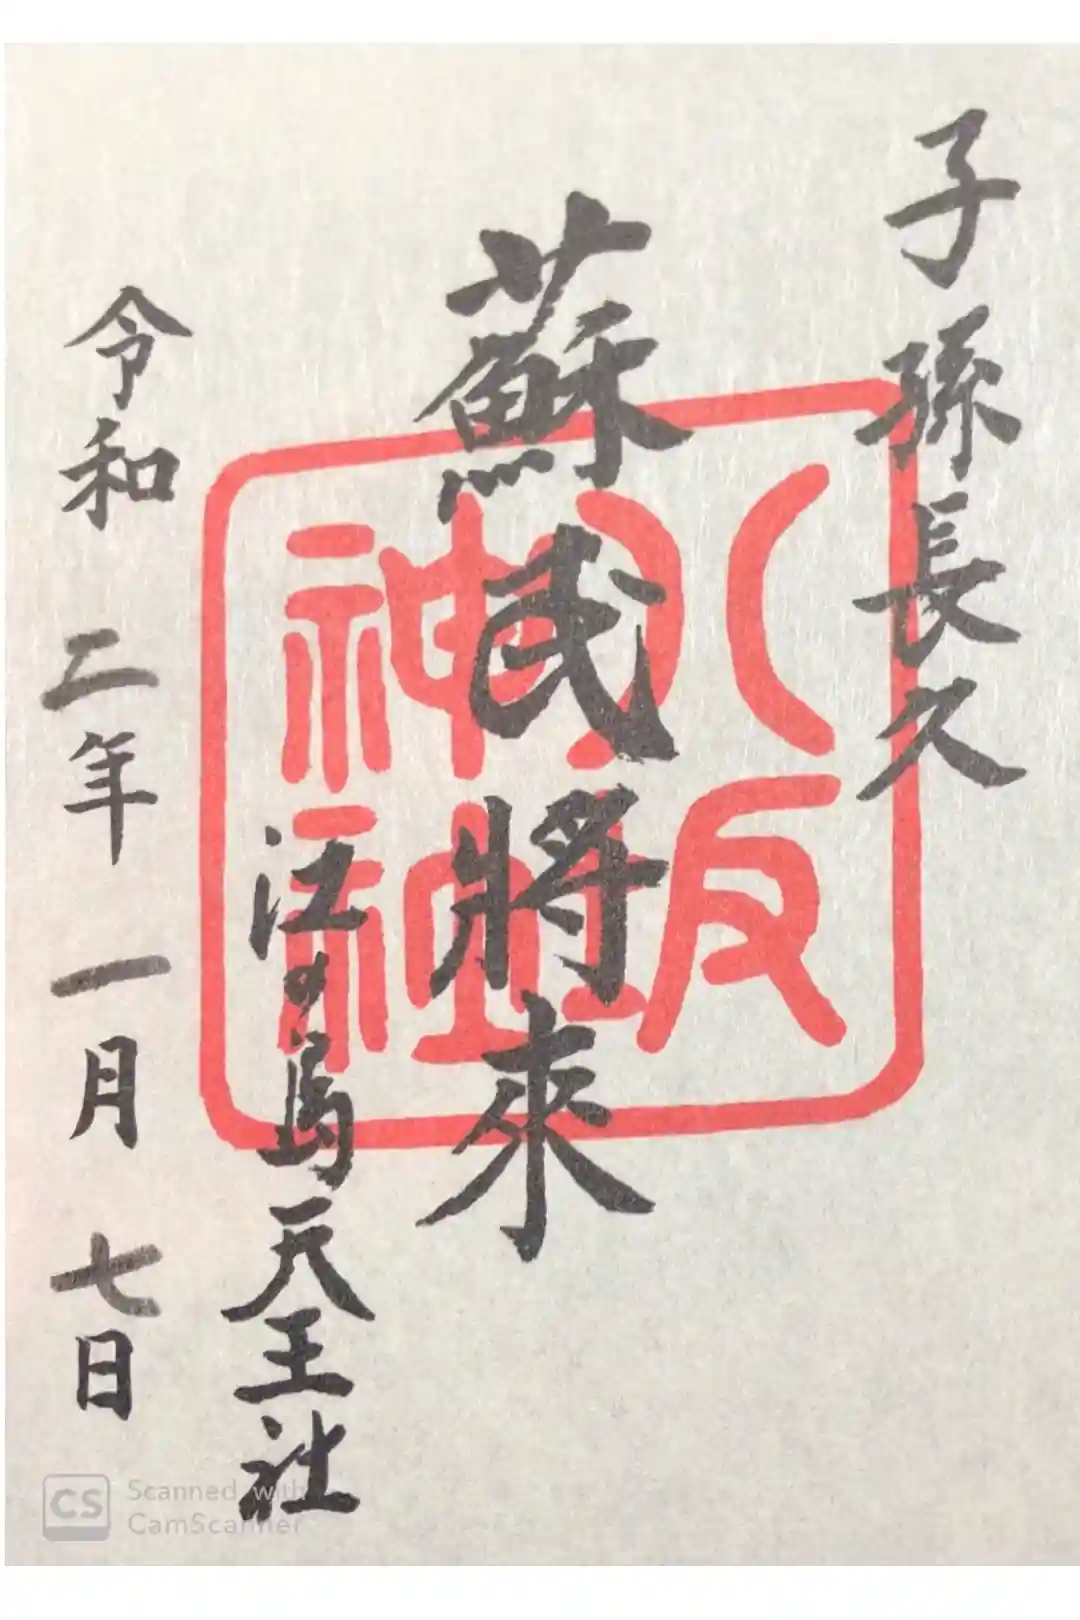 子孫長久
蘇民將來
八坂
神社
江の島天王社
令和二年一月七日
CS
Scanned with
CamScanner